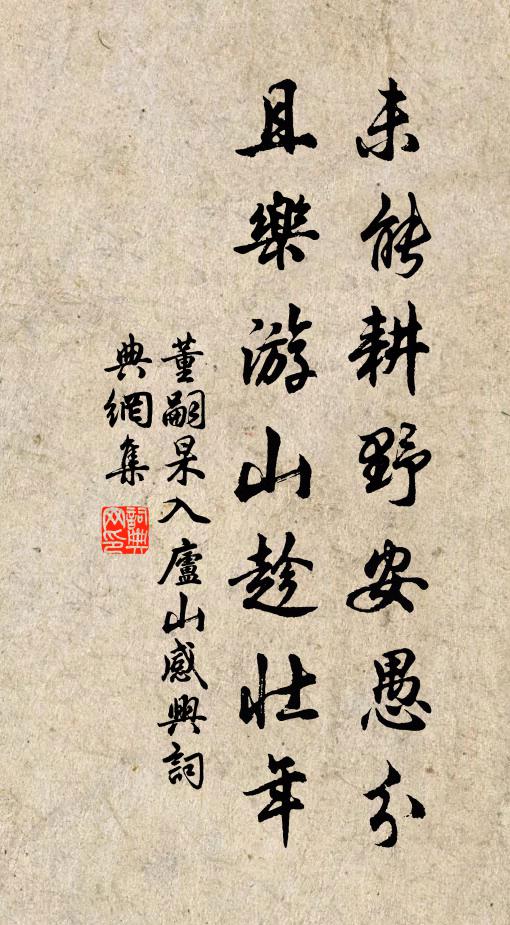 未能耕野安愚分
且樂游山趁壯年
董嗣杲入廬山感興詞
典網集
詞典
网印